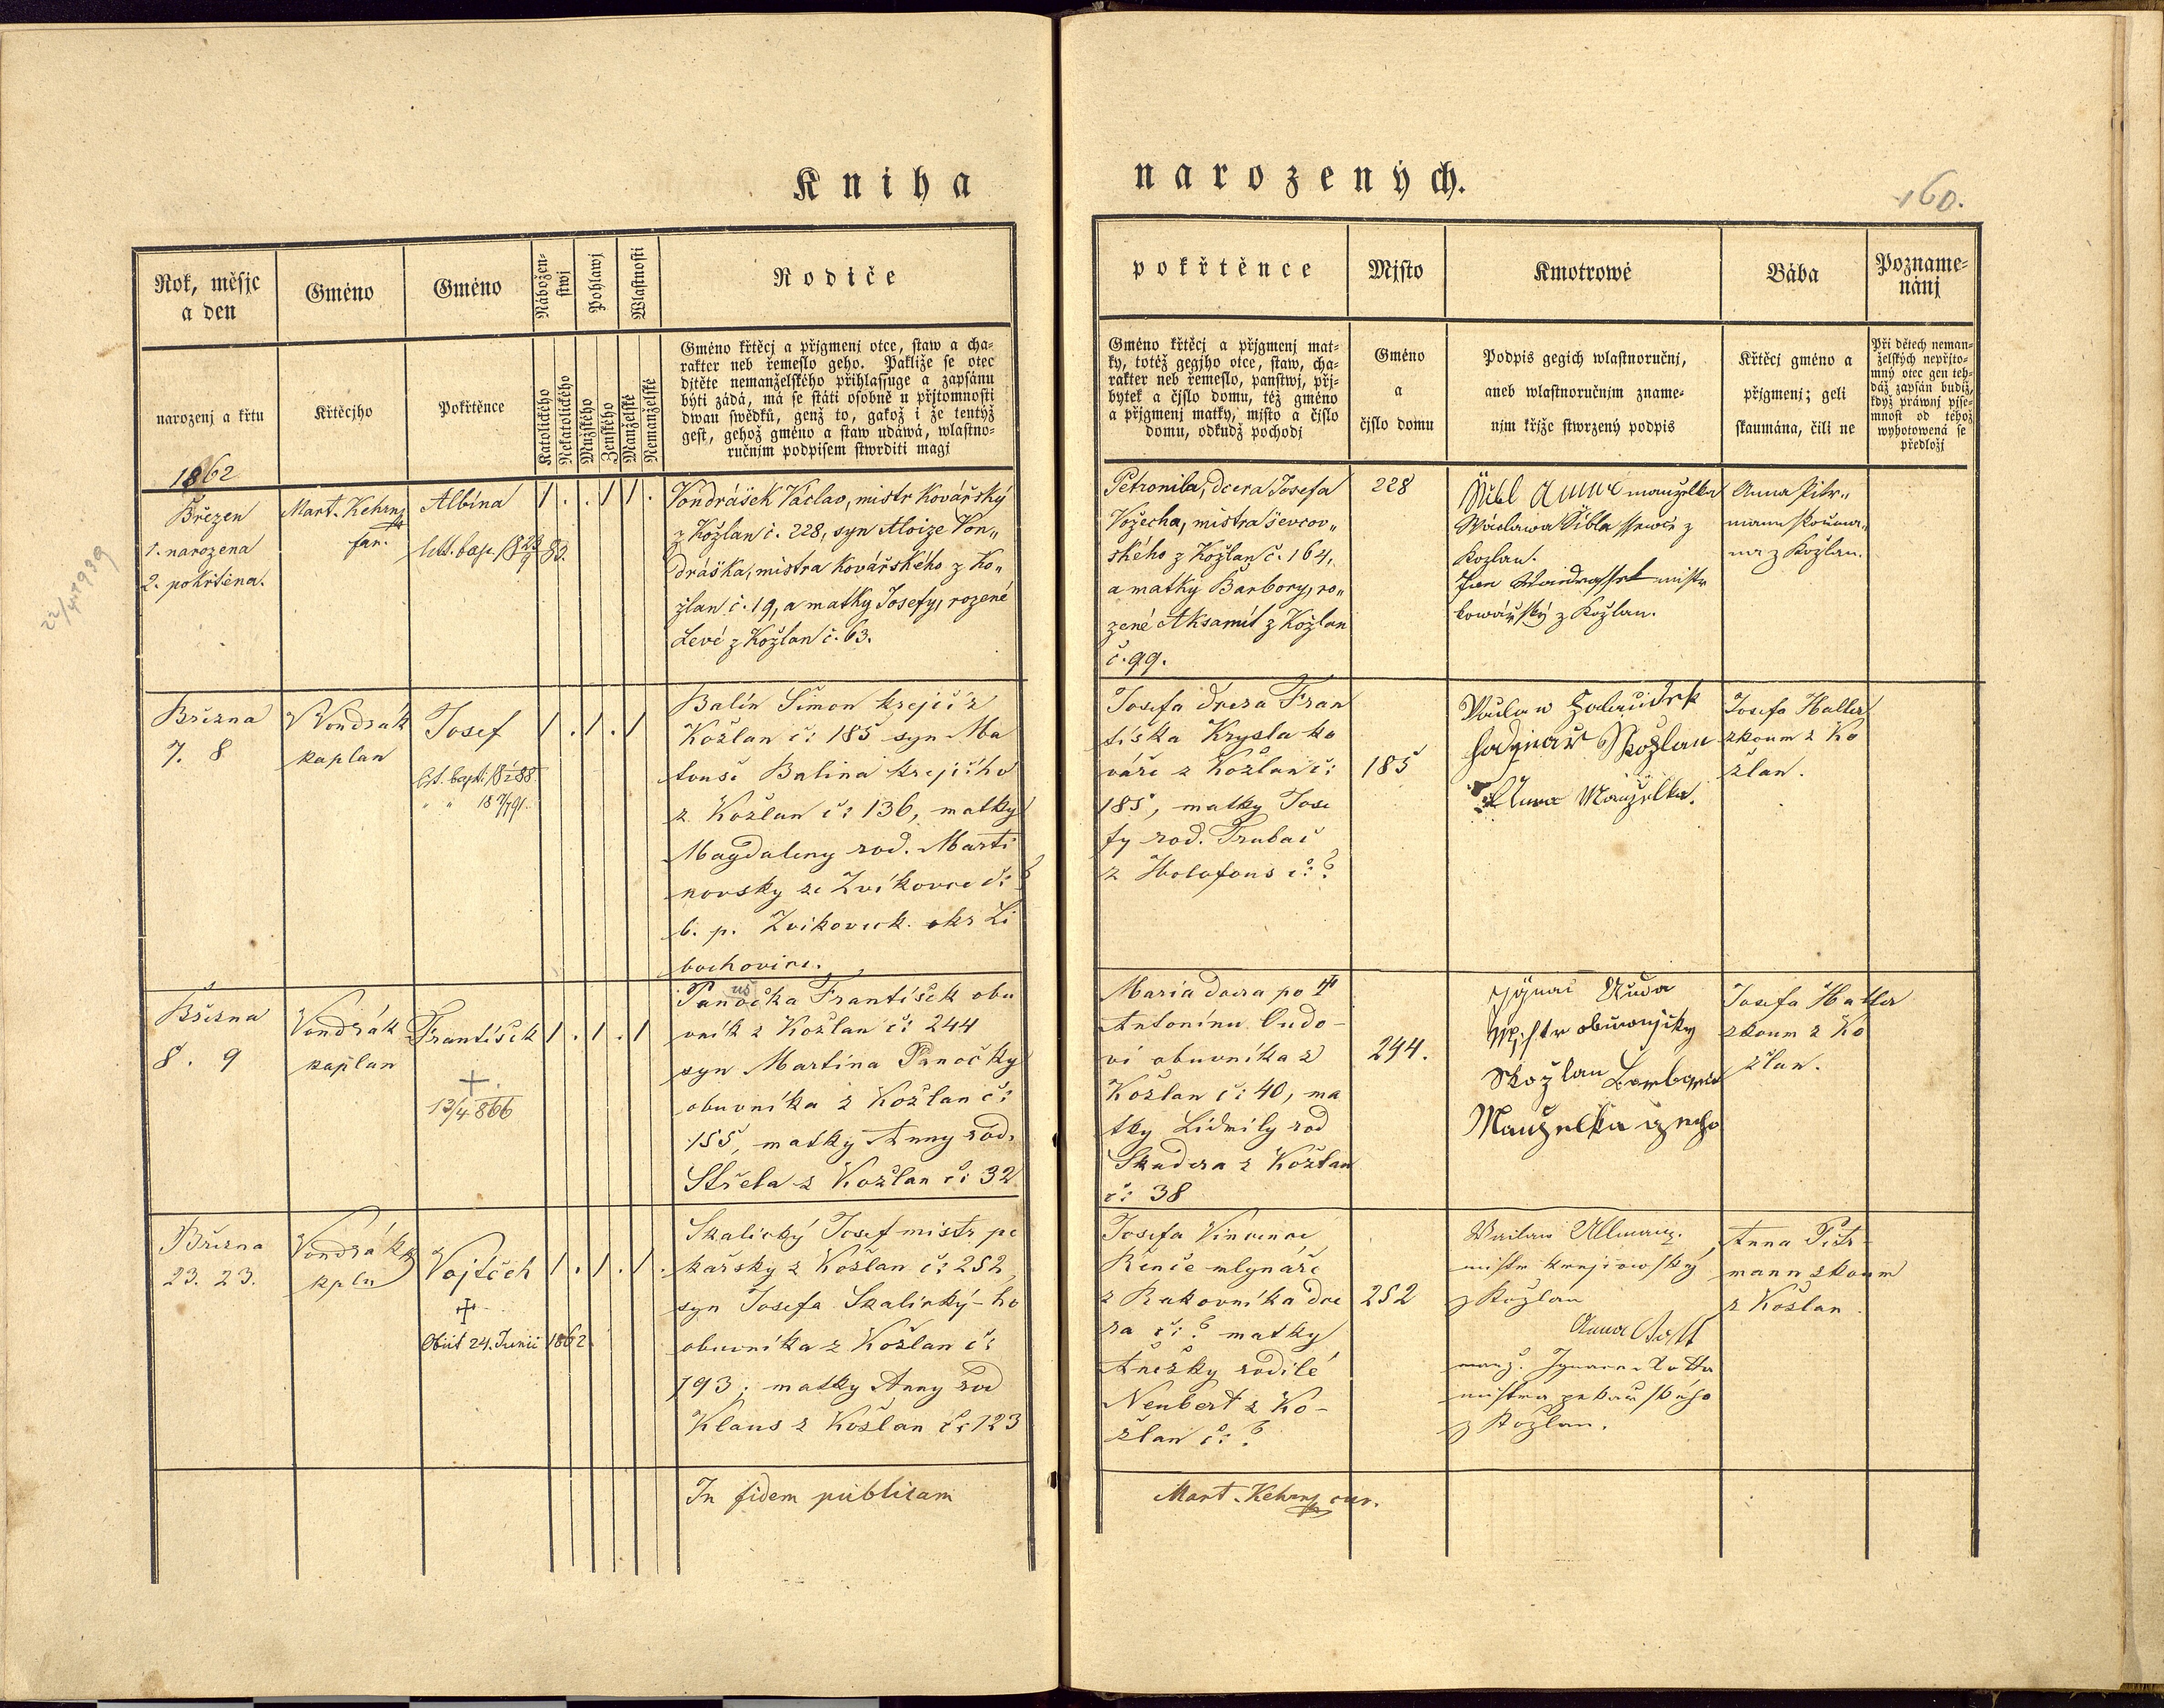 Kniha narozených.
160.
Rok, měsjc
a den
narozenj a křtu
Gméno
Křtěcjho
Gméno
Pokřtěnce
Nábožen-
stwj
Katolického
Nekatolického
Pohlawj
Mužského
Ženského
Wlastnosti
Manželské
Nemanželské
Rodiče
Gméno křtěcj a přjgmenj otce, staw a cha-
rakter neb řemeslo geho. Pakliže se otec
djtěte nemanželského přihlassuge a zapsánu
býti žádá, má se státi osobně u přjtomnosti
dwau swědků, genž to, gakož i že tentýž
gest, gehož gméno a staw udáwá, wlastno-
ručnjm podpisem stwrditi magj
pokřtěnce
Gméno křtěcj a přjgmenj mat-
ky, totéž gegjho otce, staw, cha-
rakter neb řemeslo, panstwj, přj-
bytek a čjslo domu, též gméno
a přjgmenj matky, mjsto a čjslo
domu, odkudž pocházj
Mjsto
Gméno
a
čjslo domu
Kmotrowé
Podpis gegich wlastnoručnj,
aneb wlastnoručnjm zname-
njm křjže stwrzený podpis
Bába
Křtěcj gméno a
přjgmenj; geli
skaumána, čili ne
Pozname-
nánj
Při dětech neman-
želských nepřjto-
mný otec gen teh-
dáž zapsán budiž,
když práwnj pjse-
mnost od téhož
wyhotowená se
předložj
1862
Březen
1. narozena
2. pokřtěna.
Mart. Kehrnz
far.
Albína
1 . . 1 1 .
Vondrášek Václav, mistr kovářský
z Kožlan č. 228, syn Aloize Von„
dráška, mistra kovářského z Ko„
žlan č. 19, a matky Josefy, rozené
Levé z Kožlan č. 63.
Petronila, dcera Josefa
Vožecha, mistra ševcov„
ského z Kožlan č. 164,
a matky Barbory, ro„
zené Aksamit z Kožlan
č. 99.
228
Šíbl Anna manzelka
Wáclawa Šíbla ssewce z
Kozlan.
Jan Wondrassek mistr
kowářský z Kožlan.
Anna Pitr„
mann skouma„
na z Kožlan.
Března
7. 8
Vondrák
kaplan
Josef
1 . 1 . 1
Balín Šimon krejčí z
Kožlan č: 185 syn Ma
touše Balína krejčího
z Kožlan č: 136, matky
Magdaleny rod. Marti
novsky ze Zvíkovce č: ?
b. p. Zvíkoveck. okr Li
bochovice.
Josefa dcera Fran
tiška Krysla ko
váře z Kožlan č:
185, matky Jose
fy rod. Trubač
z Holofous č: ?
185
Anna Manželka.
Josefa Haller
zkoum z Ko
žlan.
Března
8. 9
Vondrák
kaplan
František
+
13/4 866
1 . 1 . 1
Panočka František obu
uš
vník z Kožlan č: 244
syn Martina Panočky
obuvníka z Kožlan č:
155, matky Anny rod.
Střela z Kožlan č: 32
Maria dcera po ✝
Antonínu Oudo-
vi obuvníka z
Kožlan č: 40, ma
tky Lidmily rod
Skudera z Kožlan
č: 38
244.
Mistr obuwnjcky
Kožlan Barbora
Manzelka geho
Josefa Haller
zkoum z Ko
žlan.
Března
23. 23.
Vondrák
kpln
Vojtěch
✝
Obiit 24. Junii 1862.
1 . 1 . 1 .
Skalický Josef mistr pe
kařsky z Kožlan č: 252,
syn Josefa Skalický-ho
obuvníka z Kožlan č:
193; matky Anny rod
Klaus z Kožlan č: 123
Josefa Vincence
Rinče mlynáře
z Rakovníka dce
ra č: ? matky
Anežky rodilé
Neubert z Ko-
žlan č: ?
252
Waclaw Ullmann.
mistr krejčowský
z Kožlan
Anna
manž. Ignace
mistra pekařského
z Kožlan.
Anna Pitr-
mann zkoum
z Kožlan.
In fidem publicam
Mart. Kehrnz cur.